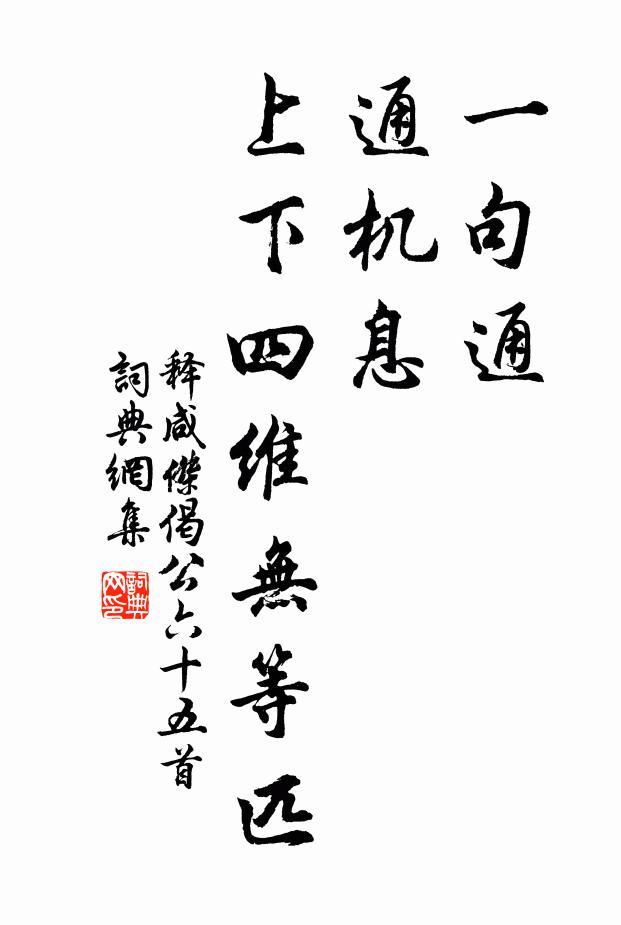 一句通
通机息
上下四维無等匹
释咸傑偈公六十五首
詞典網集
詞典网印